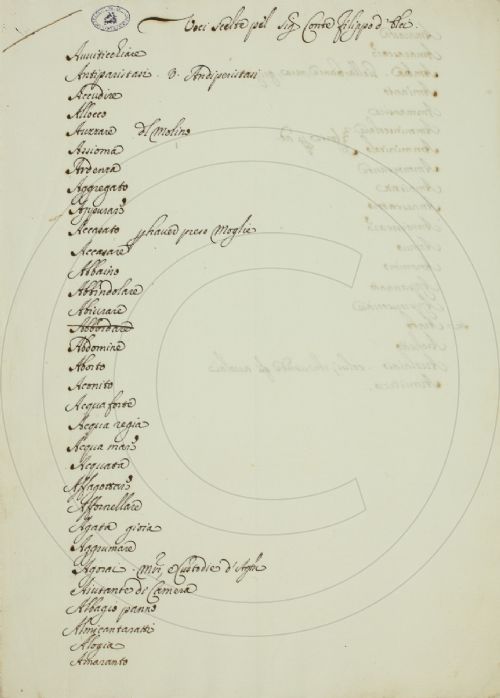 Voci Scelte pel Sig. Conte Filippo d'Elci.
Avviticchiare
Antiparistasi. o. Antiperistasi
Accudire
Allocco
Auzzare del Molino
Assioma
Ardenza
Aggregato
Appurare
Accasato p haver preso Moglie
Accasare
Abbaino
Abbindolare
Abiurare
Abbordare
Abdomine
Aborto
Aconito
Acqua forte
Acqua regia
Acqua
Acquata
Affagottare
Affornellare
Agata gioia
Aggrumare
Custodie d'
Aiutante di Camera
Albagio panno
Almicantaratti
Alogia
Amaranto